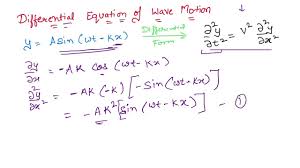 Differential Equation of Wave Motion
y = A Sin (wt - Kx) Differential Form ∂²y/∂t² = V² ∂²y/∂x²
∂y/∂x = -AK cos (wt - Kx)
∂²y/∂x² = -AK (-K) [-Sin (wt - Kx)]
= -AK² [Sin (wt - Kx)] - ①